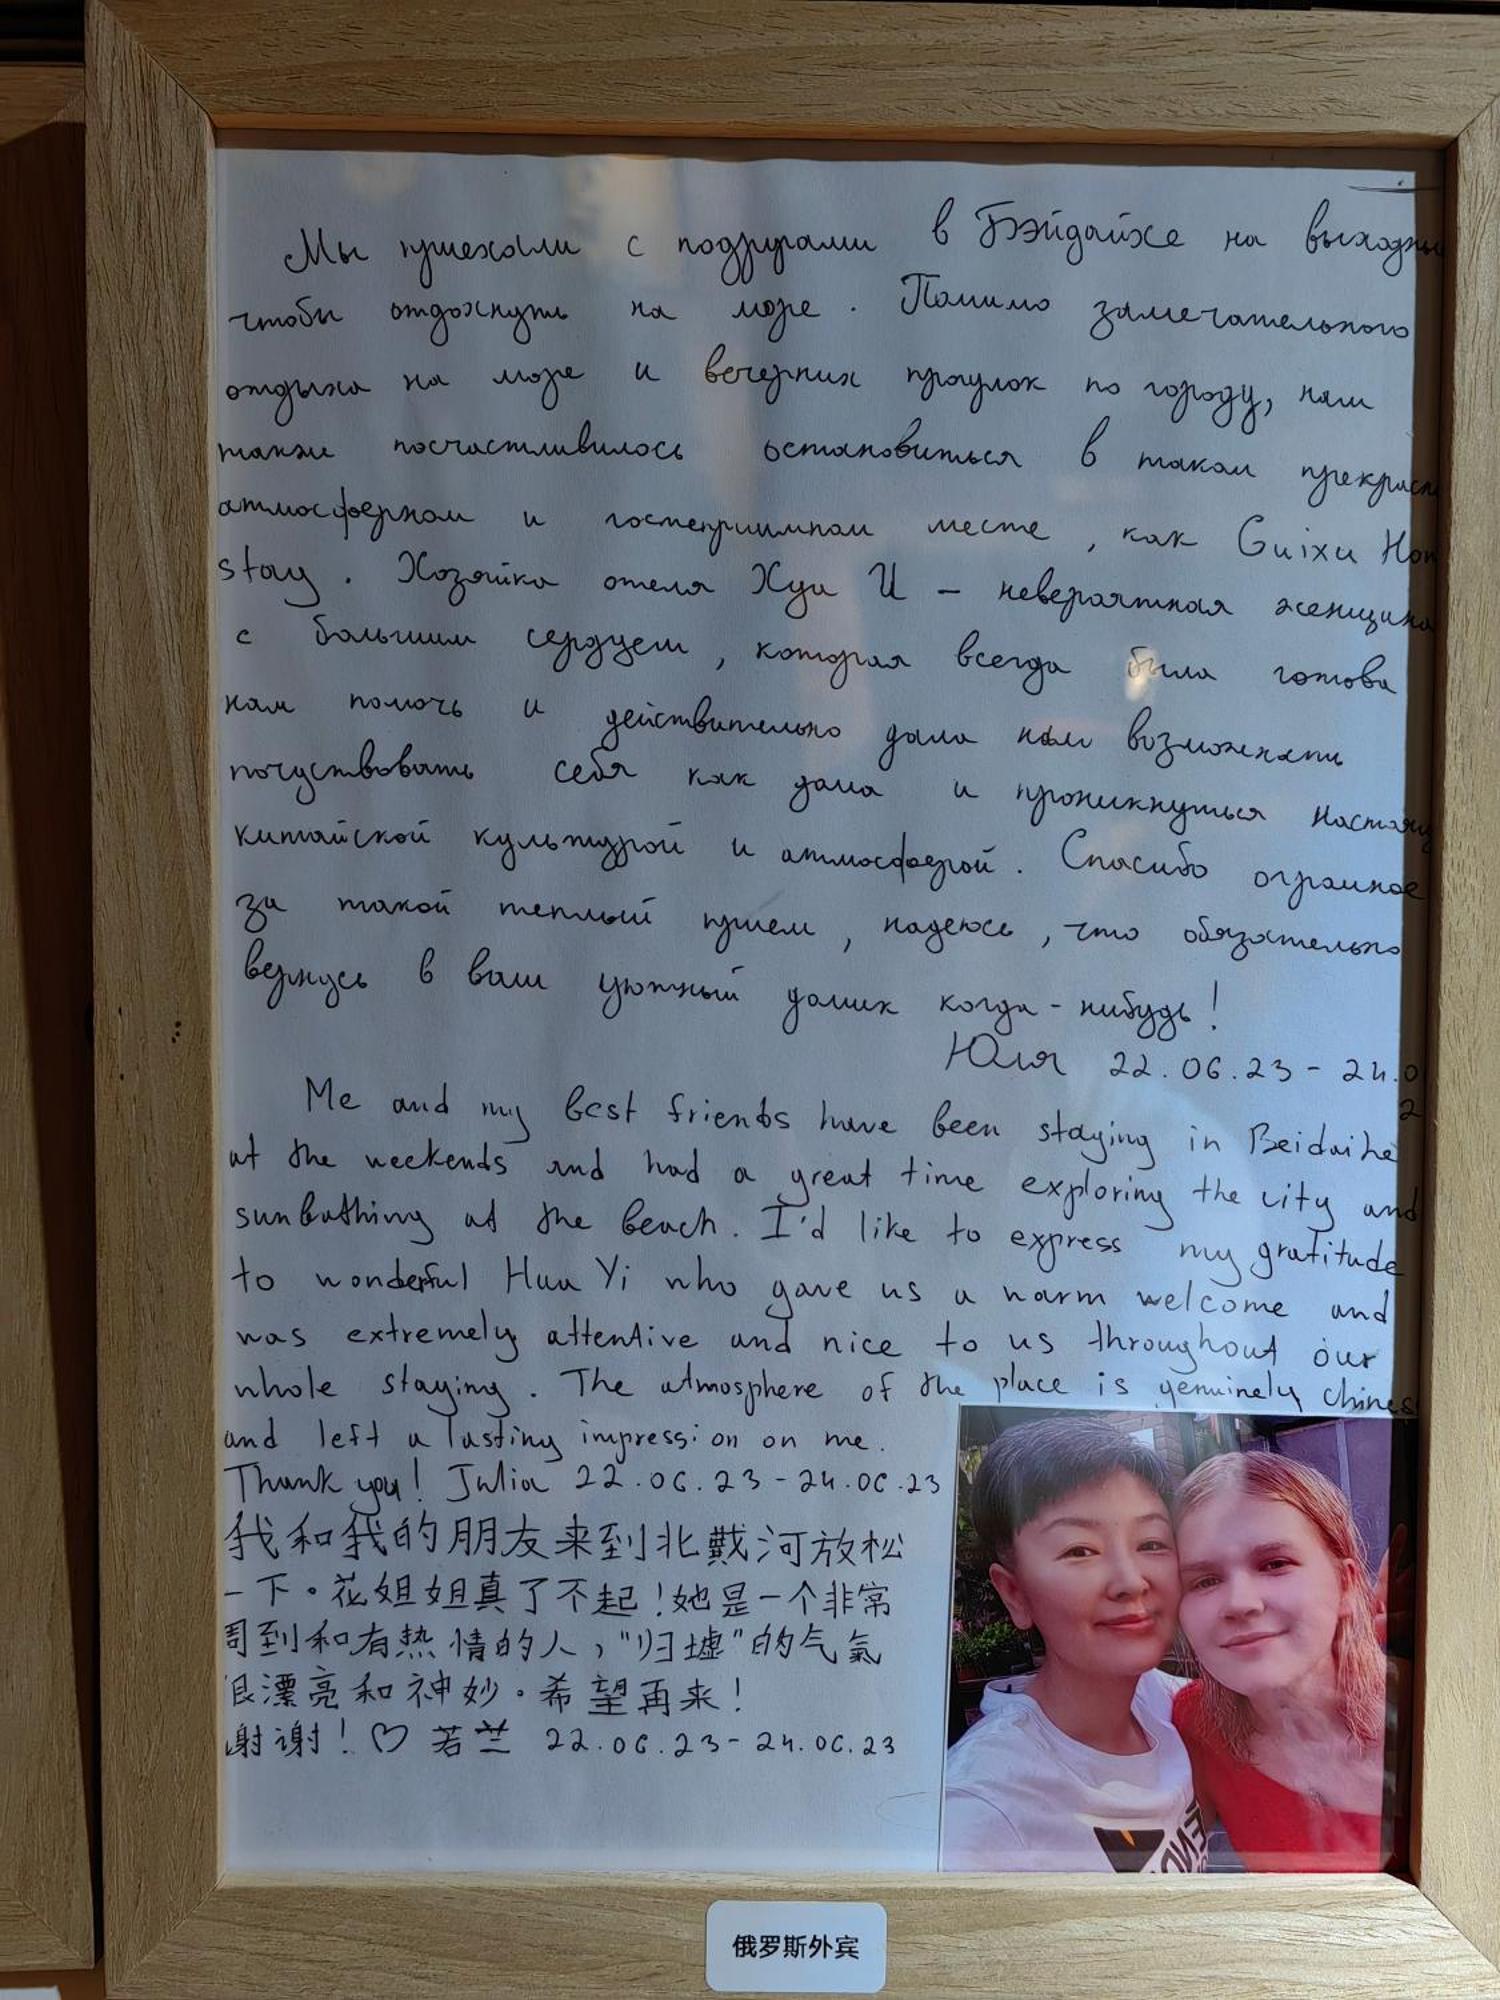 Мы приехали с подругами в Бэйдайхе на выходные
чтобы отдохнуть на море. Помимо замечательного
отдыха на море и вечерних прогулок по городу, нам
также посчастливилось остановиться в таком
атмосферном и гостеприимном месте, как Guixu
stay. Хозяйка отеля Хуа И - невероятная женщина
с большим сердцем, которая всегда была готова
нам помочь и действительно дала нам возможность
почуствовать себя как дома и проникнуться
китайской культурой и атмосферой. Спасибо огромное
за такой теплый прием, надеюсь, что обязательно
вернусь в ваш уютный домик когда-нибудь!
Юля 22.06.23 - 24.0
2
Me and my best friends have been staying in Beidaihe
at the weekends and had a great time exploring the city and
sunbathing at the beach. I'd like to express my gratitude
to wonderful Hua Yi who gave us a warm welcome and
was extremely attentive and nice to us throughout our
whole staying. The atmosphere of the place is genuinely chines
and left a lasting impression on me.
Thank you! Julia 22.06.23 - 24.06.23
我和我的朋友来到北戴河放松
一下。花姐姐真了不起!她是一个非常
周到和有热情的人,"归墟"的气氛
很漂亮和神妙。希望再来!
谢谢!♡ 若兰 22.06.23 - 24.06.23
俄罗斯外宾